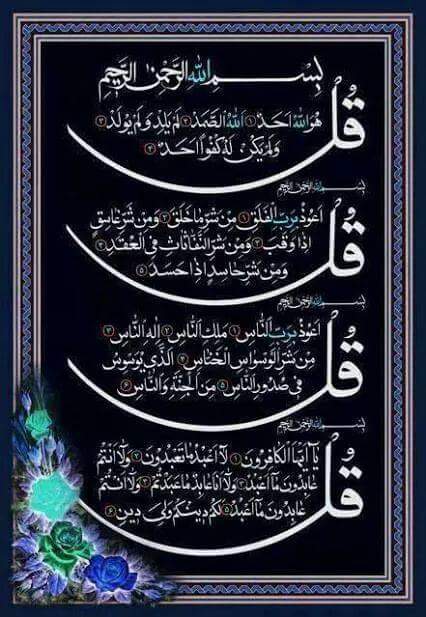 بسم الله الرحمن الرحيم
قل
هو الله احد ۱ الله الصمد ۲ لم يلد ولم يولد ۳
ولم يكن له كفوا احد ۴
بسم الله الرحمن الرحيم
قل
اعوذ برب الفلق ۱ من شر ما خلق ۲ ومن شر غاسق
اذا وقب ۳ ومن شر النفاثات في العقد ۴
ومن شر حاسد اذا حسد ۵
بسم الله الرحمن الرحيم
قل
اعوذ برب الناس ۱ ملك الناس ۲ اله الناس ۳
من شر الوسواس الخناس ۴ الذي يوسوس
في صدور الناس ۵ من الجنة والناس ۶
بسم الله الرحمن الرحيم
قل
يا ايها الكافرون ۱ لا اعبد ما تعبدون ۲ ولا انتم
عابدون ما اعبد ۳ ولا انا عابد ما عبدتم ۴ ولا انتم
عابدون ما اعبد ۵ لكم دينكم ولي دين ۶